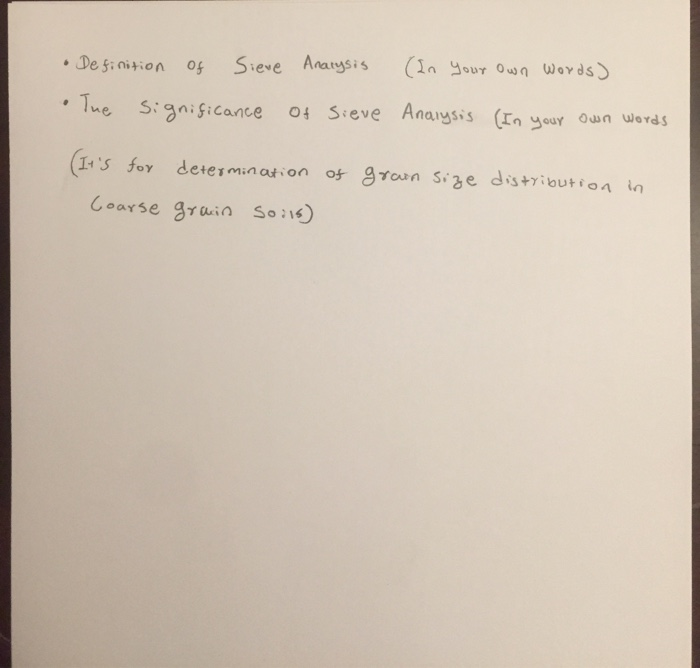 • Definition of Sieve Analysis (In your own words)
• The Significance of Sieve Analysis (In your own words
(It's for determination of grain size distribution in
Coarse grain soils)